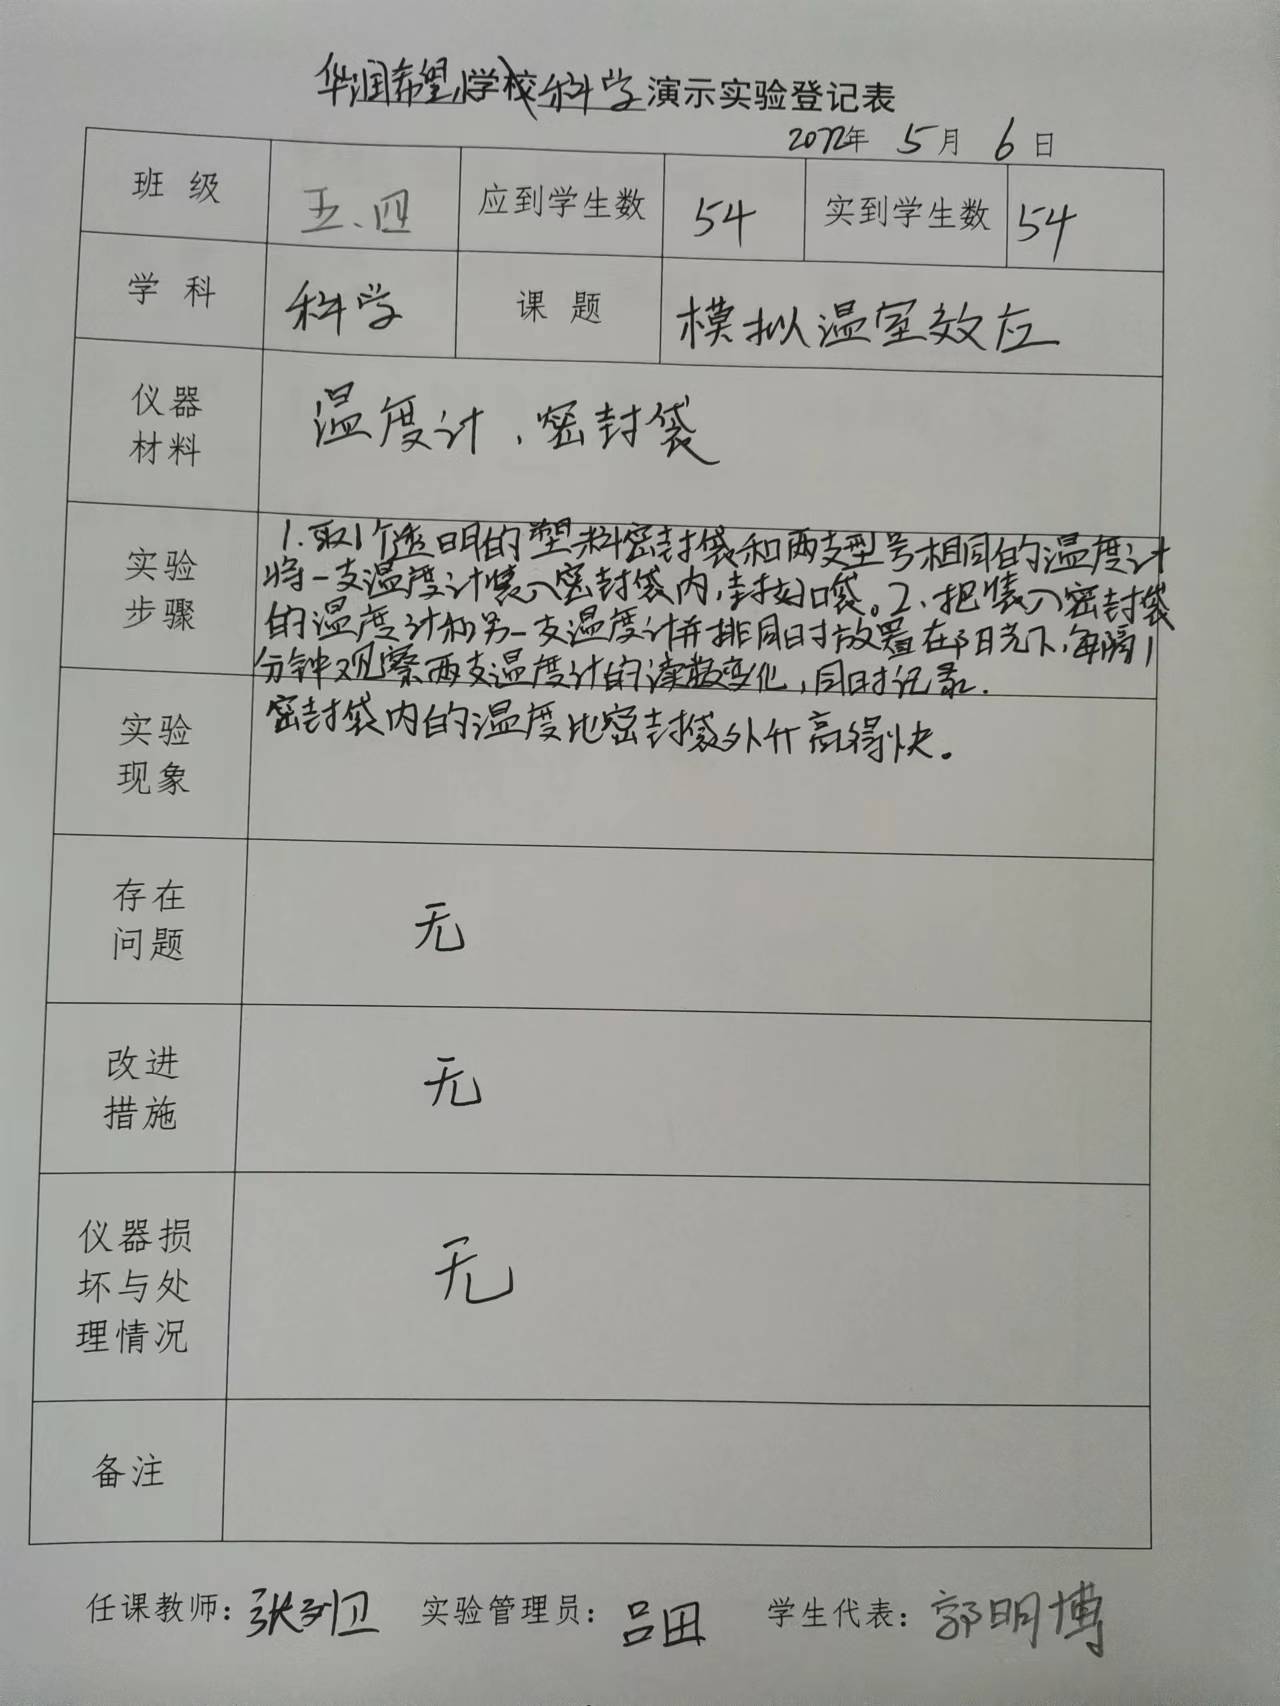 华润希望小学校科学演示实验登记表
2022年 5月 6日
班 级 五、四 应到学生数 54 实到学生数 54
学 科 科学 课 题 模拟温室效应
仪器
材料
温度计、密封袋
实验
步骤
1.取1个透明的塑料密封袋和两支型号相同的温度计
将一支温度计装入密封袋内,封好口袋。2、把装入密封袋
的温度计和另一支温度计并排同时放置在阳光下,每隔1
分钟观察两支温度计的读数变化,同时记录.
实验
现象
密封袋内的温度比密封袋外升高得快。
存在
问题
无
改进
措施
无
仪器损
坏与处
理情况
无
备注
任课教师:张列卫 实验管理员:吕田 学生代表:郭明博